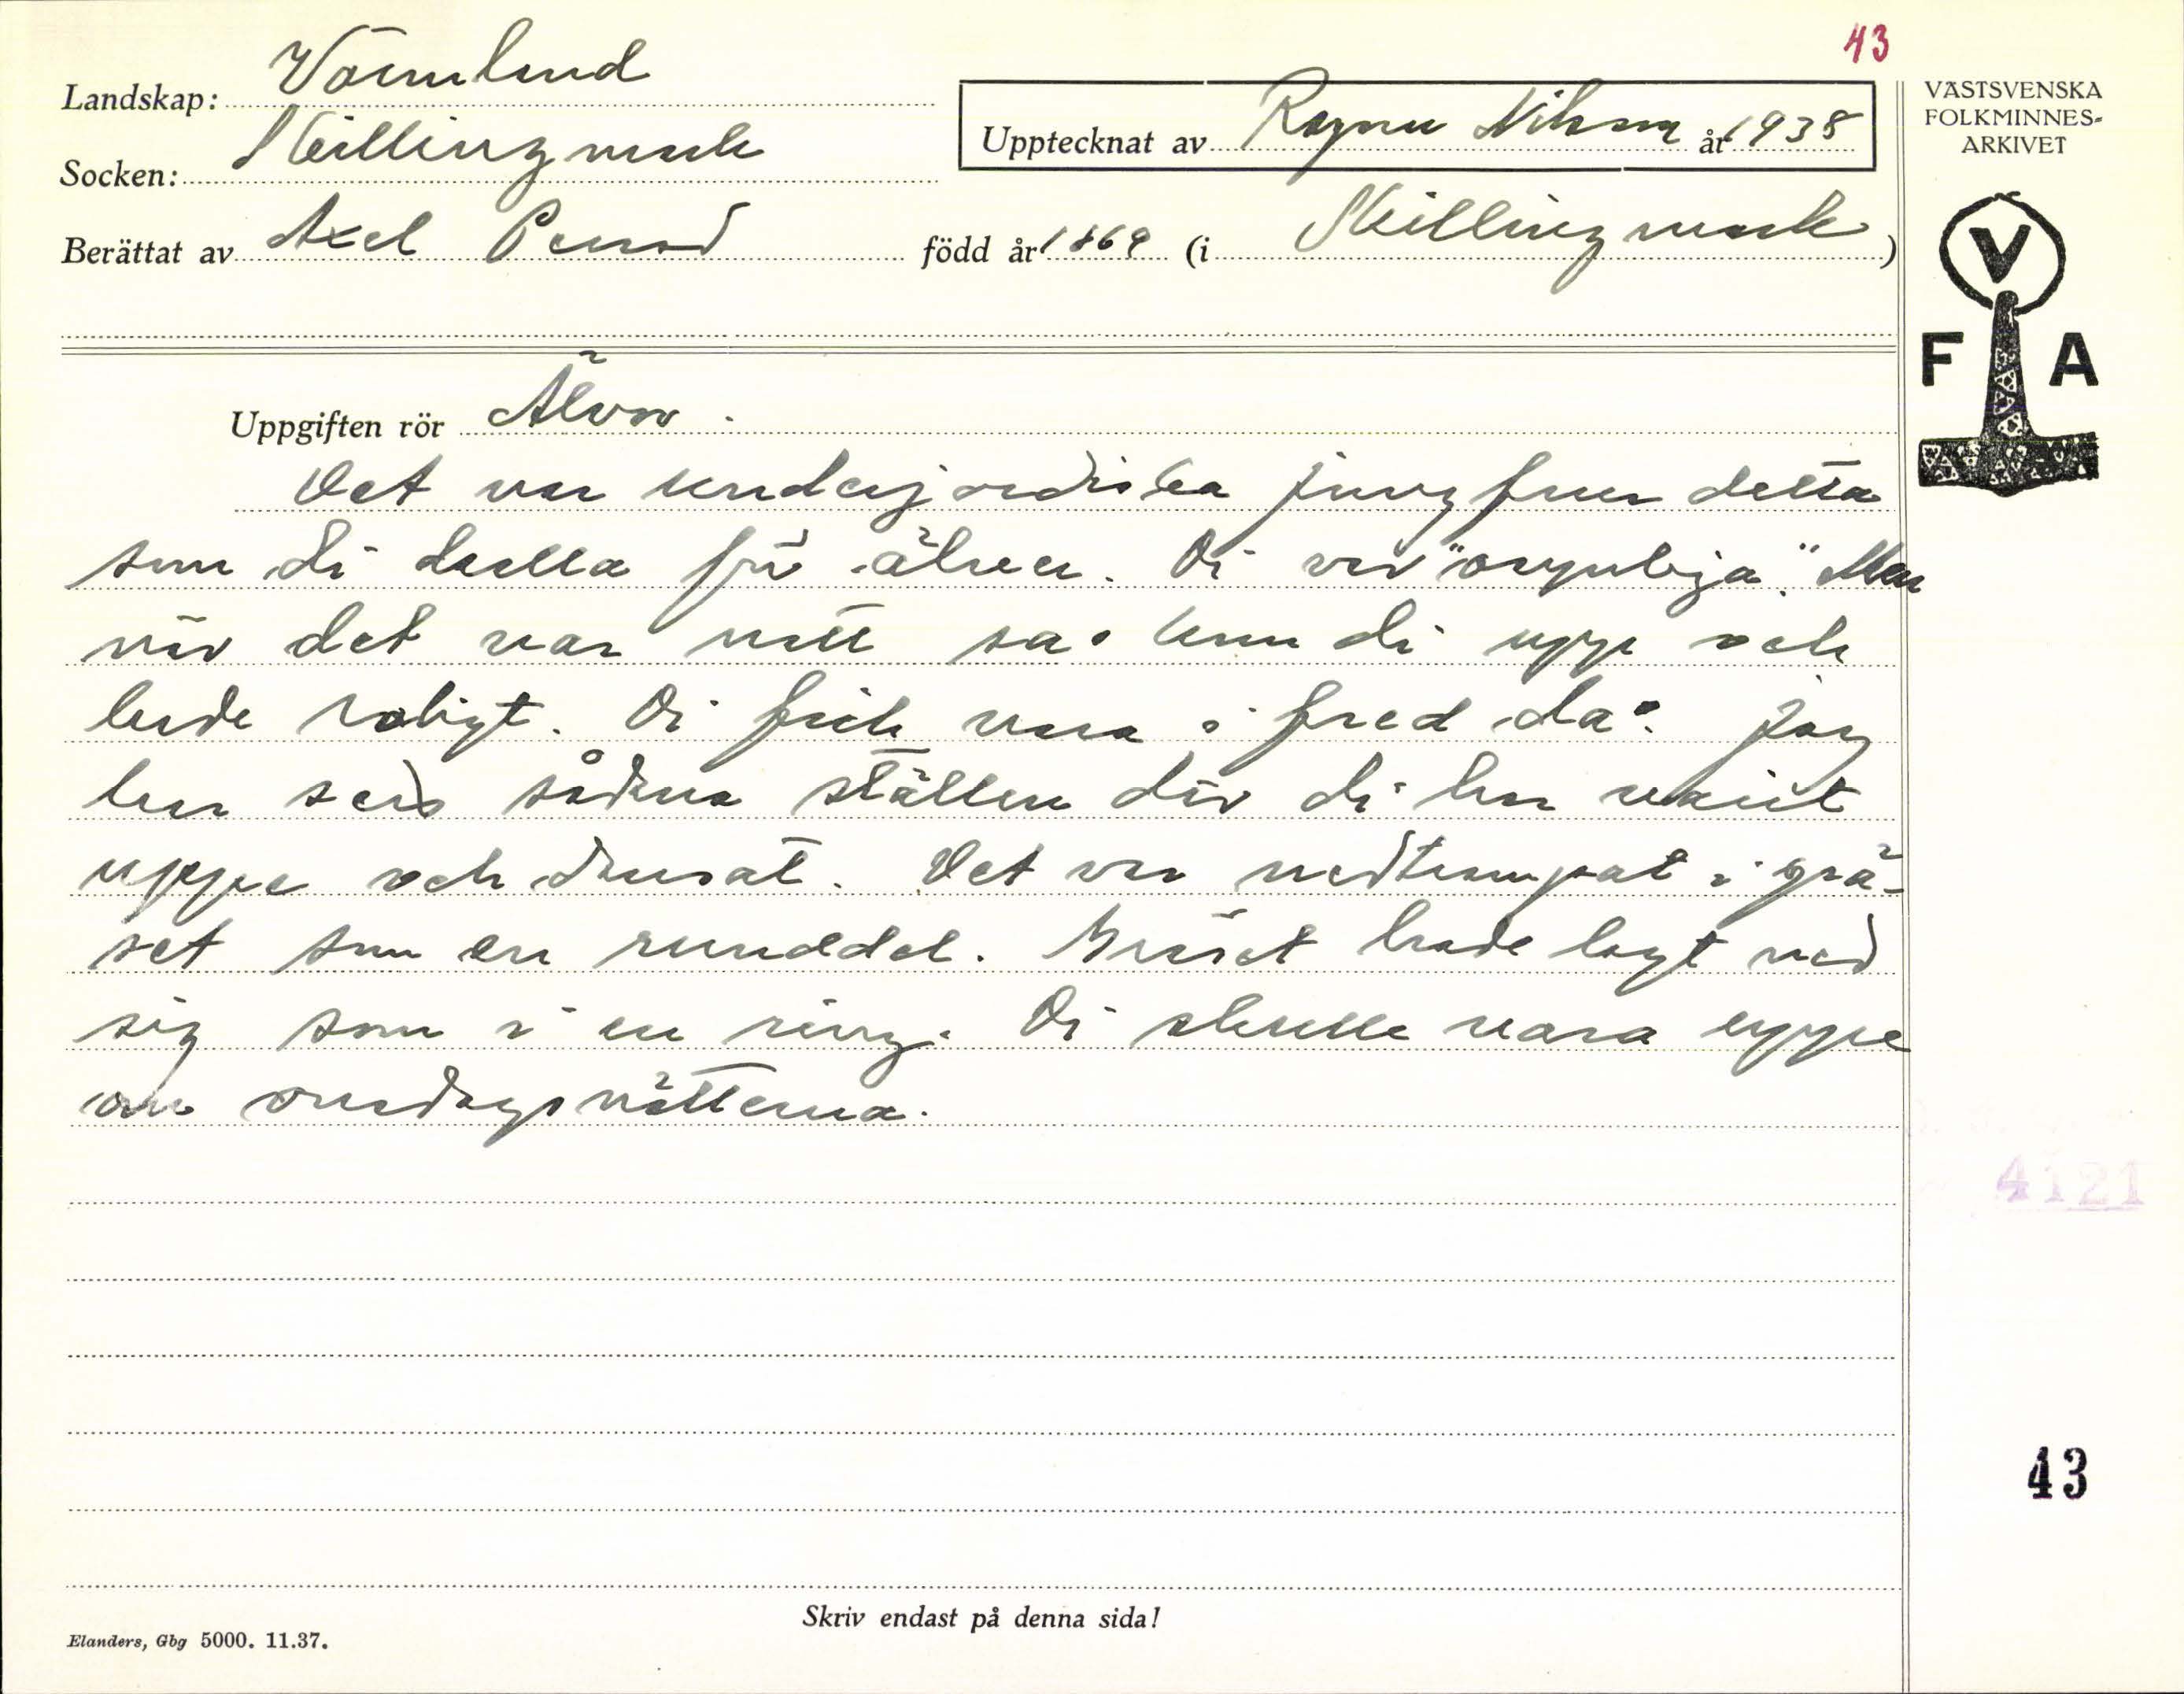 43
Landskap: Värmland
Socken: Skillingmark
Upptecknat av Ragnar Nilsson år 1938
Berättat av Axel Persod född år 1869 (i Skillingmark)
VÄSTSVENSKA
FOLKMINNES-
ARKIVET
V
F A
Uppgiften rör Älvor.
Det var underjordiska jungfrur detta
som di kalla för älver. Di var "osynliga." Men
när det var natt så kom di upp och
hade roligt. Di fick vara i fred då. Jag
har sett sådana ställen där di har varit
uppe och dansat. Det var nedtrampat i grä-
set som en runddel. Gräset hade lagt ned
sig som i en ring. Di skulle vara uppe
om onsdagsnätterna.
4121
43
Skriv endast på denna sida!
Elanders, Gbg 5000. 11.37.